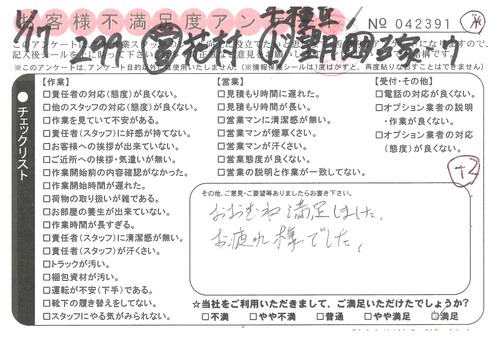 お客様不満足度アン
No 042391
1/17 299
このアンケートは
記入後シール
(※このアンケートは、アンケート目的以外に直接使用いたしません)(※情報保護シールは1度はがすと、再度貼りなおすことはできません)
チェックリスト
【作業】
□責任者の対応(態度)が良くない。
□他のスタッフの対応(態度)が良くない。
□作業を見ていて不安がある。
□責任者(スタッフ)に好感が持てない。
□お客様への挨拶が出来ていない。
□ご近所への挨拶・気遣いが無い。
□作業開始前の内容確認がなかった。
□作業開始時間が遅れた。
□荷物の取り扱いが雑である。
□お部屋の養生が出来ていない。
□作業時間が長すぎる。
□責任者(スタッフ)に清潔感が無い。
□責任者(スタッフ)が汗くさい。
□トラックが汚い。
□梱包資材が汚い。
□運転が不安(下手)である。
□靴下の履き替えをしてない。
□スタッフにやる気がみられない。
【営業】
□見積もり時間に遅れた。
□見積もり時間が長い。
□営業マンに清潔感が無い。
□営業マンが煙草くさい。
□営業マンが汗くさい。
□営業態度が良くない。
□営業の説明と作業が一致してない。
【受付・その他】
□電話の対応が良くない。
□オプション業者の説明
・作業が良くない。
□オプション業者の対応
(態度)が良くない。
その他、ご意見・ご要望等ありましたらお書き下さい。
おおむね満足しました。
お疲れ様でした。
☆当社をご利用いただきまして、ご満足いただけたでしょうか?
□不満 □やや不満 □普通 □やや満足 □満足